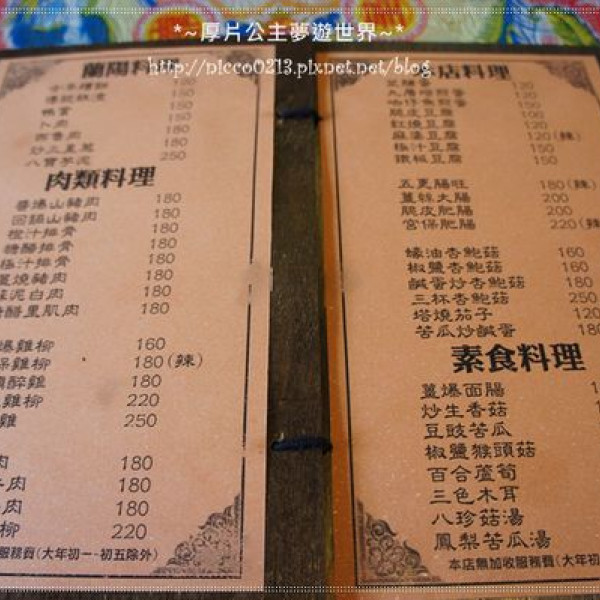 *~厚片公主夢遊世界~*
http://nicco0213.pixnet.net/blog
蘭陽料理
150
150
鴨賞 150
卜肉 150
西魯肉 150
炒三星蔥 150
八寶芋泥 250
肉類料理
醬爆山豬肉 180
回鍋山豬肉 180
橙汁排骨 180
糖醋排骨 180
極汁排骨 180
薑燒豬肉 180
泥白肉 180
糖醋里肌肉 180
爆雞柳 160
保雞柳 180(辣)
醉雞 180
雞柳 220
雞 250
肉 180
肉 180
肉 180
柳 220
服務費(大年初一-初五除外)
本店料理
菜脯蛋 120
九層塔煎蛋 120
吻仔魚煎蛋 150
脆皮豆腐 100
紅燒豆腐 120
麻婆豆腐 120(辣)
極汁豆腐 150
鐵板豆腐 150
五更腸旺 180(辣)
薑絲大腸 200
脆皮肥腸 200
宮保肥腸 220(辣)
蠔油杏鮑菇 160
椒鹽杏鮑菇 160
鹹蛋炒杏鮑菇 180
三杯杏鮑菇 250
塔燒茄子 120
苦瓜炒鹹蛋 180
素食料理
薑爆面腸
炒生香菇
豆豉苦瓜
椒鹽猴頭菇
百合蘆筍
三色木耳
八珍菇湯
鳳梨苦瓜湯
本店無加收服務費(大年初